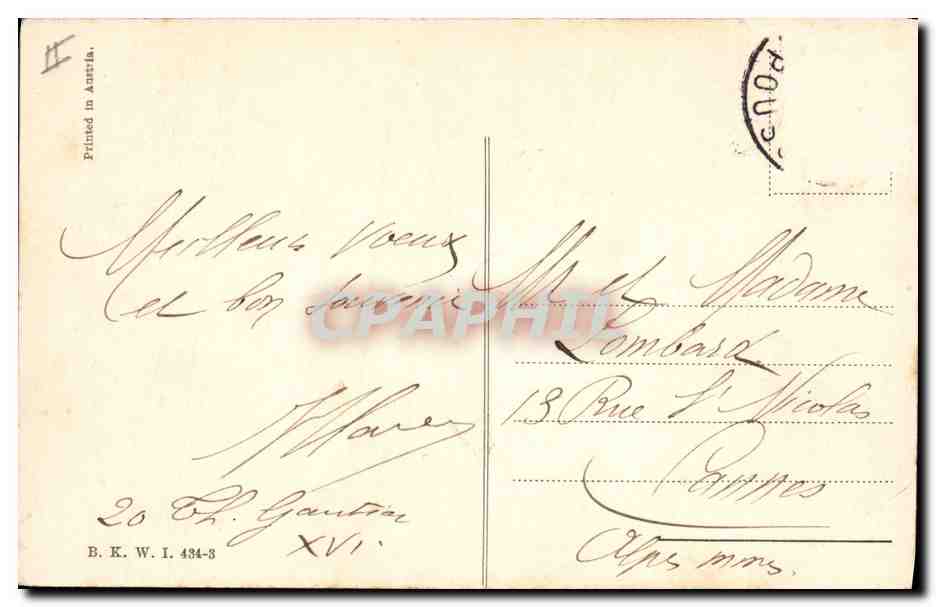 Printed in Austria.
Meilleurs voeux
et bon souvenir
20 Th. Gautier
XVI.
B. K. W. I. 434-3
M et Madame
Lombard
13 Rue St Nicolas
Cannes
Alpes mmes.
CPAPHIL